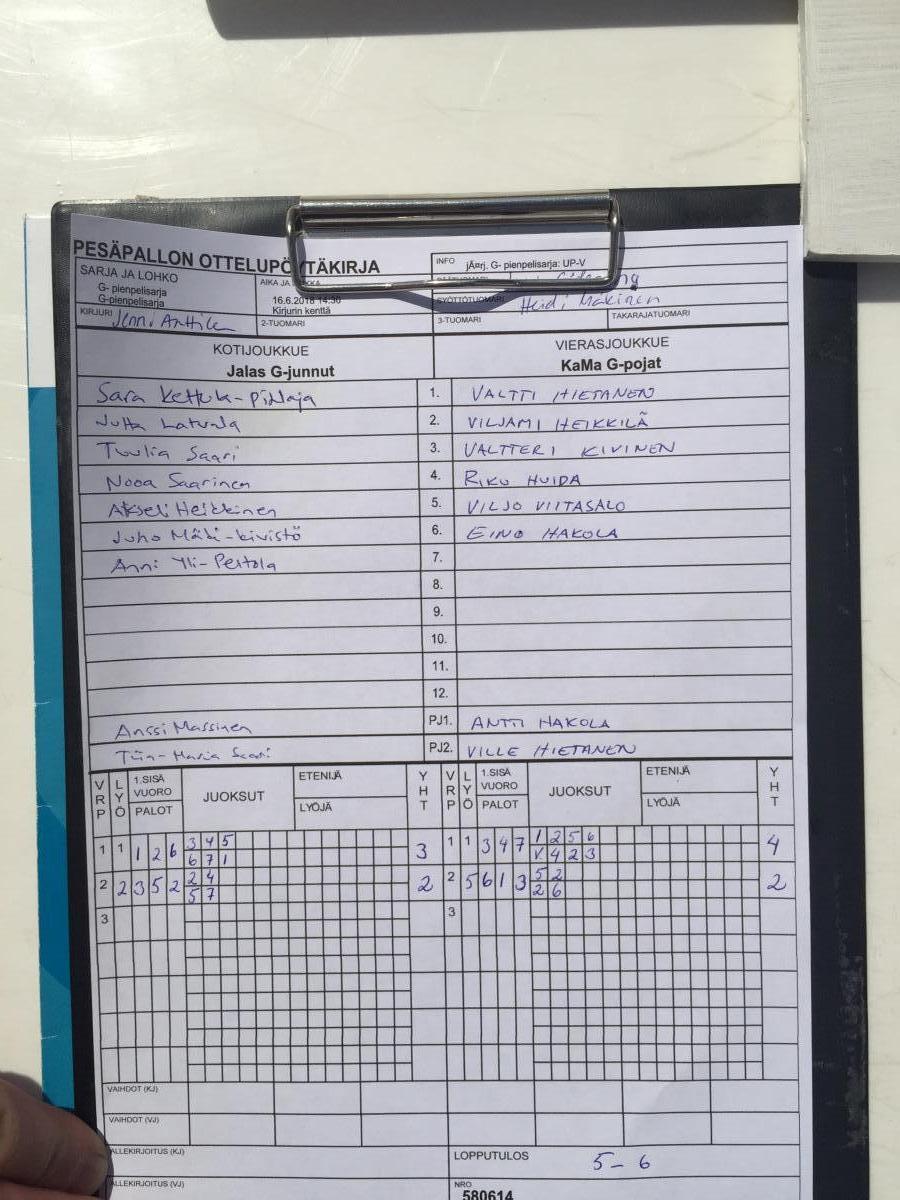 PESÄPALLON OTTELUPÖYTÄKIRJA
INFO jÃ¤rj. G- pienpelisarja: UP-V
SARJA JA LOHKO
G- pienpelisarja
G-pienpelisarja
16.6.2018 14:30
Kirjurin kenttä
SYÖTTÖTUOMARI Heidi Mäkinen
KIRJURI Jenni Anttila
2-TUOMARI
3-TUOMARI
TAKARAJATUOMARI
KOTIJOUKKUE
Jalas G-junnut
VIERASJOUKKUE
KaMa G-pojat
Sara Kettula-Pihlaja 1. VALTTI HIETANEN
Jutta Latvala 2. VILJAMI HEIKKILÄ
Tuulia Saari 3. VALTTERI KIVINEN
Nooa Saarinen 4. RIKU HUIDA
Akseli Heikkinen 5. VILJO VIITASALO
Juho Mäki-Kivistö 6. EINO HAKOLA
Anni Yli-Pertola 7.
8.
9.
10.
11.
12.
Anssi Massinen PJ1. ANTTI HAKOLA
Tiin-Maria Saari PJ2. VILLE HIETANEN
VRP LYÖ 1.SISÄ VUORO PALOT JUOKSUT ETENIJÄ LYÖJÄ YHT VRP LYÖ 1.SISÄ VUORO PALOT JUOKSUT ETENIJÄ LYÖJÄ YHT
1 1 1 2 6 3 4 5 3 1 1 3 4 7 1 2 5 6 4
6 7 1 V. 4 2 3
2 2 3 5 2 2 4 2 2 5 6 1 3 5 2 2
5 7 2 6
3 3
VAIHDOT (KJ)
VAIHDOT (VJ)
ALLEKIRJOITUS (KJ) LOPPUTULOS 5-6
ALLEKIRJOITUS (VJ) NRO
580614